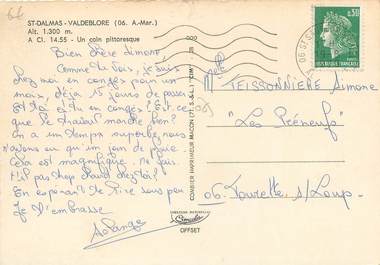 ST-DALMAS - VALDEBLORE (06. A.-Mar.)
Alt. 1.300 m.
A CI. 14.55 - Un coin pittoresque
Bien chère Simone,
Comme tu vois, je suis
chez moi en congés pour un
mois, déjà 15 jours de passés.
Et toi es tu en congés? Est ce
que le travail marche bon?
On a un temps superbe nous
n'avons eu qu'un jour de pluie
cela est magnifique. Ne fais
t'il pas trop chaud chez toi?
En espérant te lire sous peu
Je t'embrasse
Solange
COMBIER IMPRIMEUR MACON (71, S.-&-L.) "CIM"
OFFSET
0,50
REPUBLIQUE FRANÇAISE
Melle
TEISSONNIERE Simone
"Les Préneufs"
06. Tourette s/ Loup.